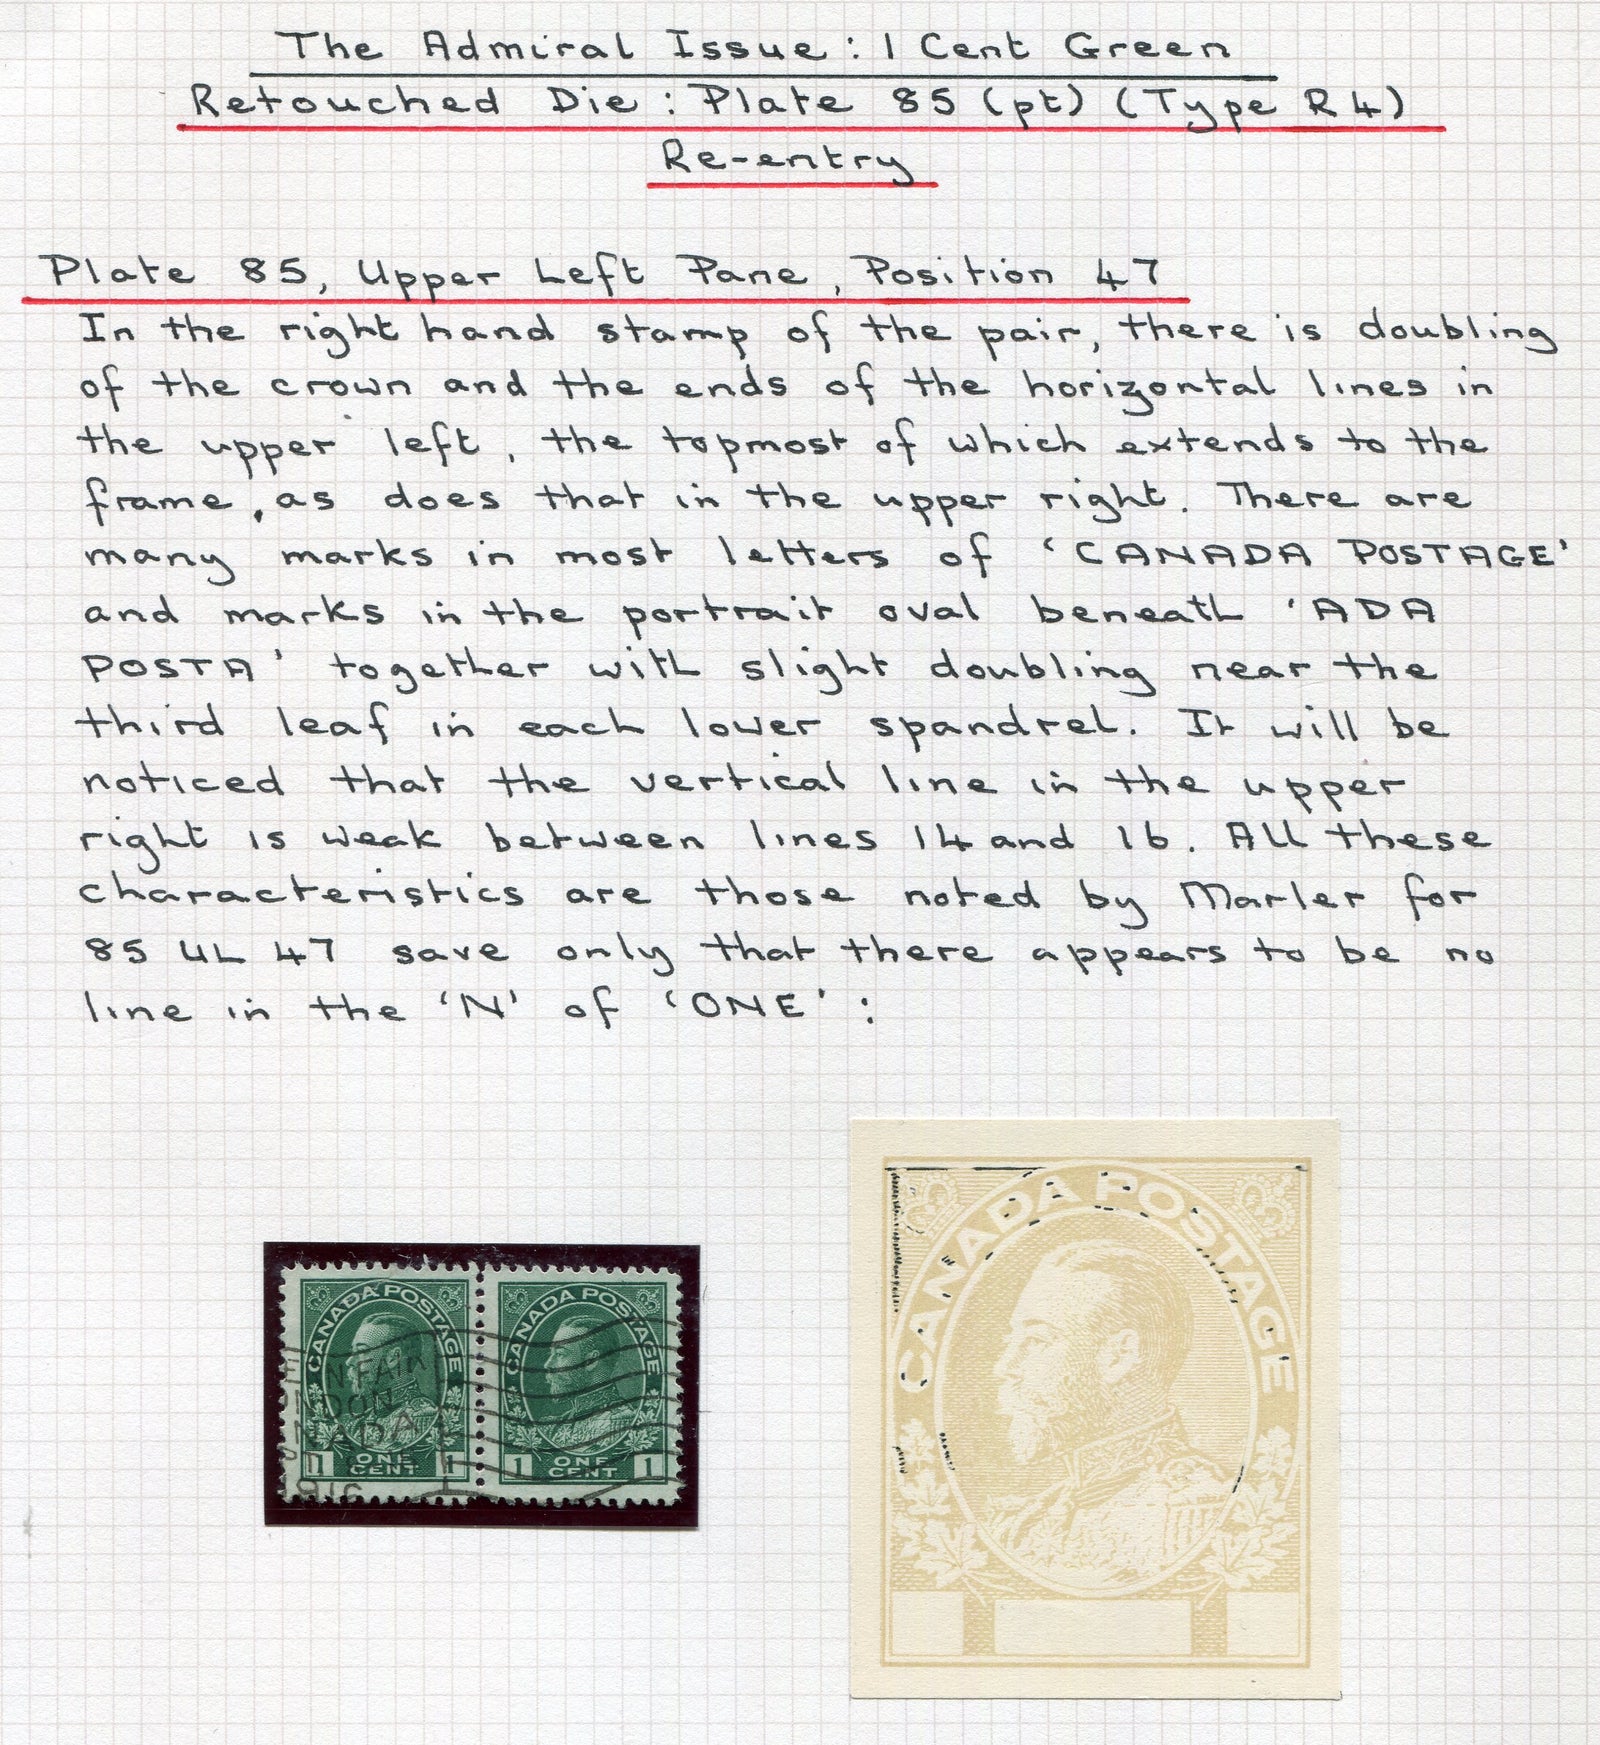 The Admiral Issue: 1 Cent Green
Retouched Die: Plate 85 (pt) (Type R4)
Re-entry
Plate 85, Upper Left Pane, Position 47
In the right hand stamp of the pair, there is doubling
of the crown and the ends of the horizontal lines in
the upper left, the topmost of which extends to the
frame, as does that in the upper right. There are
many marks in most letters of 'CANADA POSTAGE'
and marks in the portrait oval beneath 'ADA
POSTA' together with slight doubling near the
third leaf in each lower spandrel. It will be
noticed that the vertical line in the upper
right is weak between lines 14 and 16. All these
characteristics are those noted by Marler for
85 UL 47 save only that there appears to be no
line in the 'N' of 'ONE':
CANADA POSTAGE
CANADA POSTAGE
1 ONE CENT 1
1 ONE CENT 1
CANADA POSTAGE